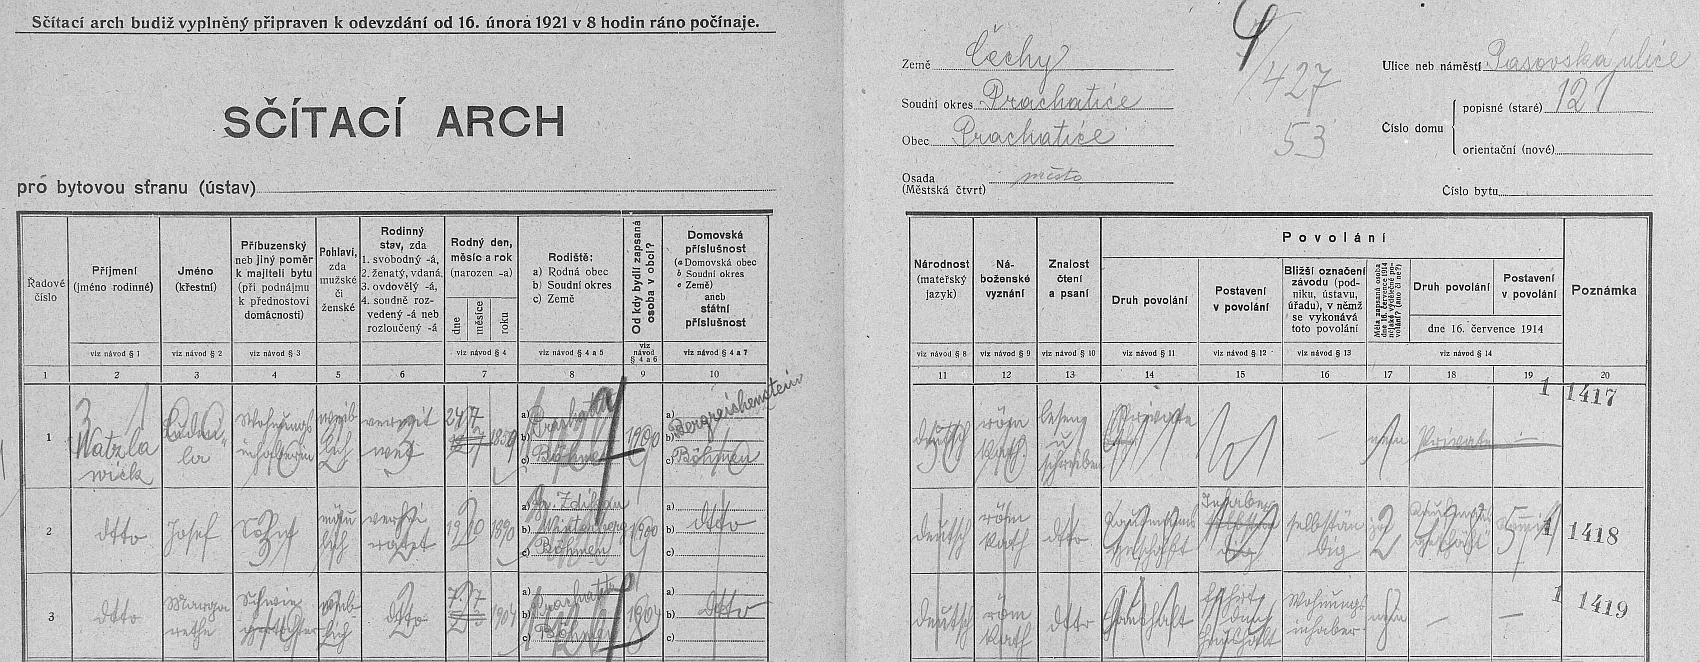 Sčítací arch budiž vyplněný připraven k odevzdání od 16. února 1921 v 8 hodin ráno počínaje.
SČÍTACÍ ARCH
pro bytovou stranu (ústav)
Řadové číslo
Příjmení
(jméno rodinné)
Jméno
(křestní)
Příbuzenský
neb jiný poměr
k majiteli bytu
(při podnájmu
k přednostovi
domácnosti)
Pohlaví,
zda
mužské
či
ženské
Rodinný
stav, zda
1. svobodný -á,
2. ženatý, vdaná,
3. ovdovělý -á,
4. soudně roz-
vedený -á neb
rozloučený -á
Rodný den,
měsíc a rok
(narozen -a)
dne
měsíce
roku
Rodiště:
a) Rodná obec
b) Soudní okres
c) Země
Od kdy bydlí zapsaná
osoba v obci?
Domovská
příslušnost
(a Domovská obec
b Soudní okres
c Země)
aneb
státní
příslušnost
viz návod § 1
viz návod § 2
viz návod § 3
viz návod § 4
viz návod § 4 a 5
viz návod § 4 a 6
viz návod § 4 a 7
1 2 3 4 5 6 7 8 9 10
1
Watzla
wick
Ludmi
la
Wohnungs
inhaberin
weib
lich
verwit
wet
24 7 1859
a)
b)
c) Böhmen
1900
a) Bergreichenstein
b)
c) Böhmen
2
dtto
Josef
Sohn
männ
lich
verhei
ratet
19 1890
a)
b) Winterberg
c) Böhmen
1900
a)
b) dtto
c)
3
dtto
Marga
rethe
Schwie
gertochter
weib
lich
dtto
7 1904
a) Prachatitz
b)
c) Böhmen
1904
a)
b) dtto
c)
Země Čechy
Soudní okres Prachatice
Obec Prachatice
Osada
(Městská čtvrť) město
1427
53
Ulice neb náměstí Pasovská ulice
Číslo domu
popisné (staré) 121
orientační (nové)
Číslo bytu
Národnost
(mateřský
jazyk)
Ná-
boženské
vyznání
Znalost
čtení
a psaní
Povolání
Druh povolání
Postavení
v povolání
Bližší označení
závodu (pod-
niku, ústavu,
úřadu), v němž
se vykonává
toto povolání
Měla zapsaná osoba
dne 16. července 1914
nějaké výdělečné po-
volání? (ano či ne?)
Druh povolání
Postavení
v povolání
dne 16. července 1914
Poznámka
viz návod § 8
viz návod § 9
viz návod § 10
viz návod § 11
viz návod § 12
viz návod § 13
viz návod § 14
11 12 13 14 15 16 17 18 19 20
deutsch
röm
kath.
lesen
u
schreiben
Private
—
nein
Private
—
1 1417
deutsch
röm
kath
dtto
Kaufmanns
geschäft
Inhaber
selbstän
dig
ja
1 1418
deutsch
röm
kath
dtto
Haushalt
Wohnungs
inhaber
nein
—
—
1 1419